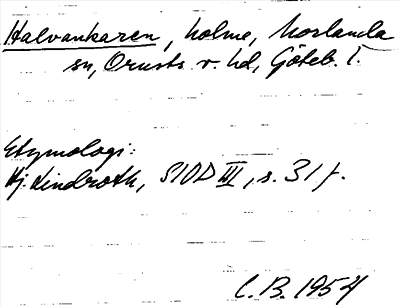 Halvankaren, holme, Morlanda
sn, Orusts v. hd, Göteb. l.
Etymologi:
Hj. Lindroth, SIOD III, s. 31 f.
C. B. 1954